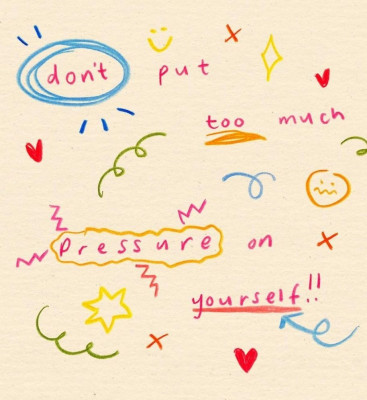 don't put
too much
pressure on
yourself!!